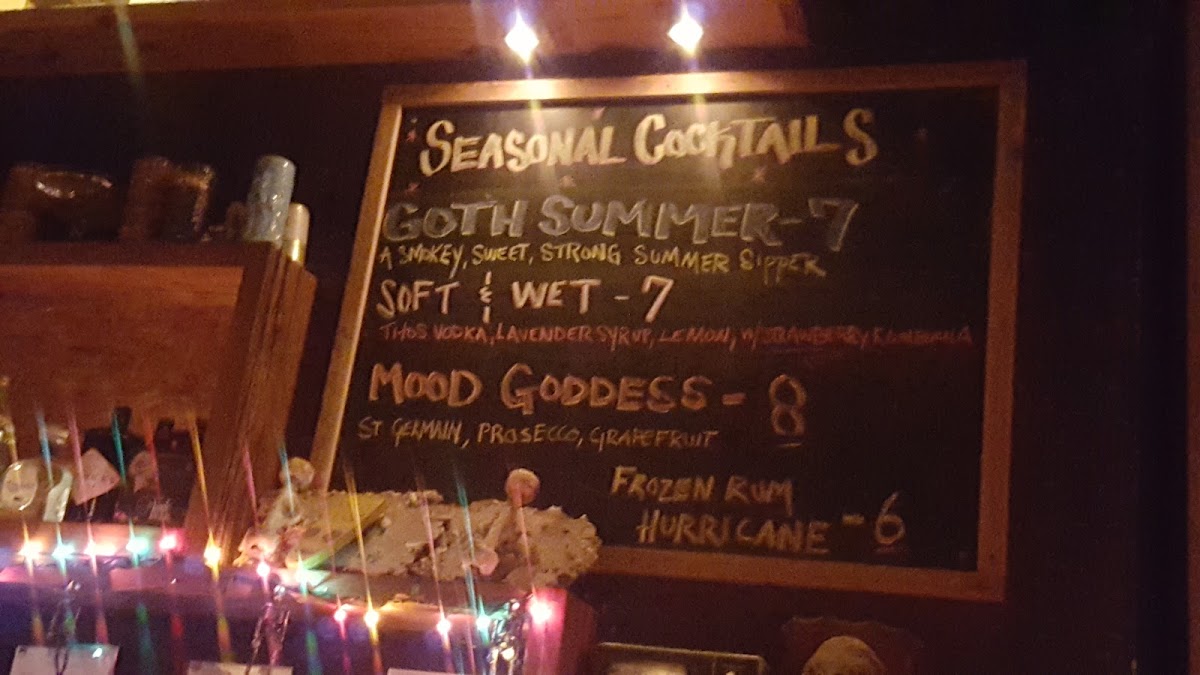 SEASONAL COCKTAILS
GOTH SUMMER - 7
A SMOKEY, SWEET, STRONG SUMMER SIPPER
SOFT & WET - 7
THOS VODKA, LAVENDER SYRUP, LEMON, W/ STRAWBERRY
MOOD GODDESS - 8
ST GERMAIN, PROSECCO, GRAPEFRUIT
FROZEN RUM
HURRICANE - 6